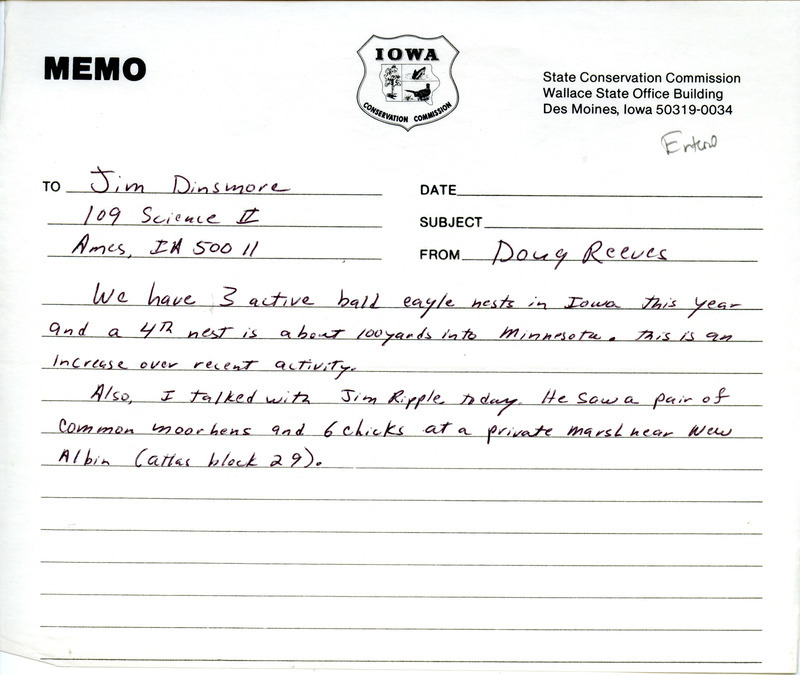 MEMO
IOWA
CONSERVATION COMMISSION
State Conservation Commission
Wallace State Office Building
Des Moines, Iowa 50319-0034
TO Jim Dinsmore
109 Science II
Ames, IA 50011
DATE
SUBJECT
FROM Doug Reeves
We have 3 active bald eagle nests in Iowa this year
and a 4th nest is about 100 yards into Minnesota. This is an
increase over recent activity.
Also, I talked with Jim Ripple today. He saw a pair of
common moorhens and 6 chicks at a private marsh near New
Albin (atlas block 29).